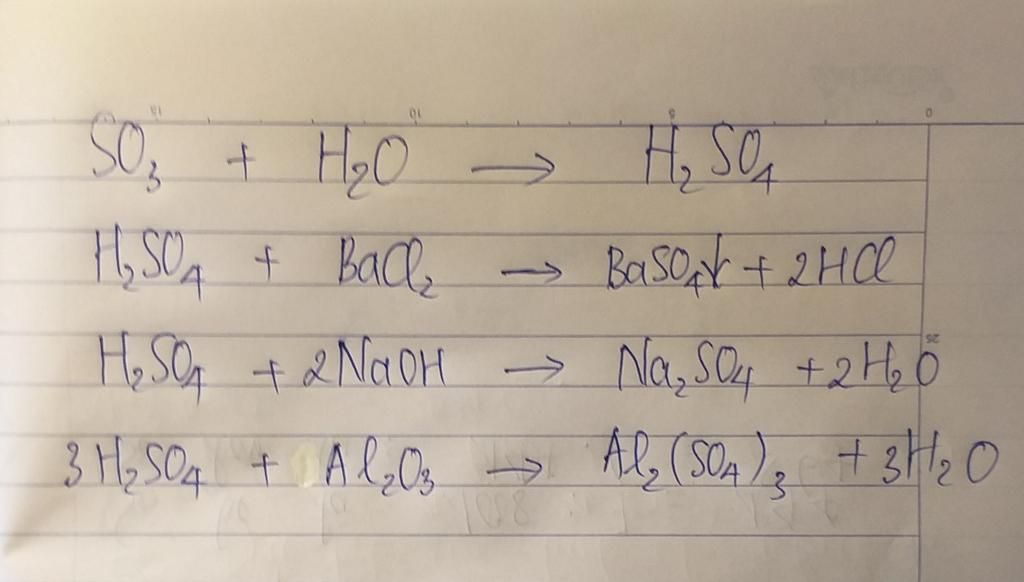 SO₃ + H₂O → H₂SO₄
H₂SO₄ + BaCl₂ → BaSO₄↓ + 2HCl
H₂SO₄ + 2NaOH → Na₂SO₄ + 2H₂O
3H₂SO₄ + Al₂O₃ → Al₂(SO₄)₃ + 3H₂O